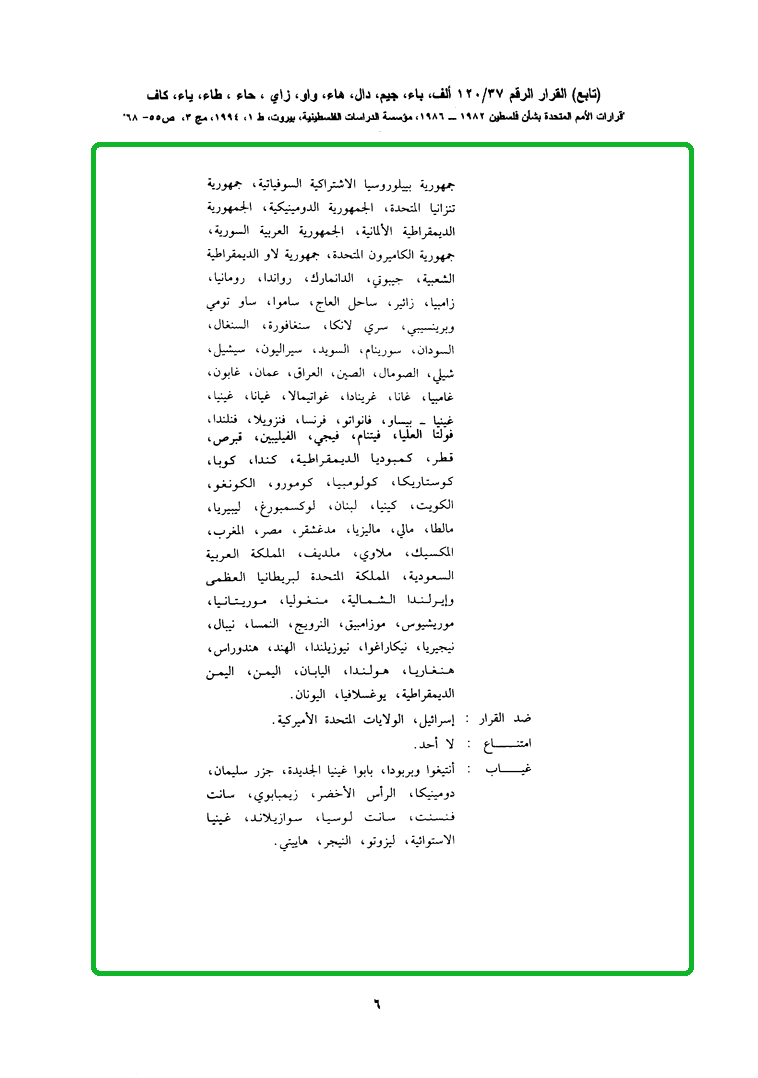 (تابع) القرار الرقم ١٢٠/٣٧ ألف، باء، جيم، دال، هاء، واو، زاي ، حاء ، طاء، ياء، كاف
"قرارات الأمم المتحدة بشأن فلسطين ١٩٨٢ – ١٩٨٦، مؤسسة الدراسات الفلسطينية، بيروت، ط ١، ١٩٩٤، مج ٣، ص٥٥- ٦٨"
جمهورية بييلوروسيا الاشتراكية السوفياتية، جمهورية
تنزانيا المتحدة، الجمهورية الدومينيكية، الجمهورية
الديمقراطية الألمانية، الجمهورية العربية السورية،
جمهورية الكاميرون المتحدة، جمهورية لاو الديمقراطية
الشعبية، جيبوتي، الدانمارك، رواندا، رومانيا،
زامبيا، زائير، ساحل العاج، ساموا، ساو تومي
وبرينسيبي، سري لانكا، سنغافورة، السنغال،
السودان، سورينام، السويد، سيراليون، سيشيل،
شيلي، الصومال، الصين، العراق، عمان، غابون،
غامبيا، غانا، غرينادا، غواتيمالا، غيانا، غينيا،
غينيا – بيساو، فانواتو، فرنسا، فنزويلا، فنلندا،
فولتا العليا، فيتنام، فيجي، الفيليبين، قبرص،
قطر، كمبوديا الديمقراطية، كندا، كوبا،
كوستاريكا، كولومبيا، كومورو، الكونغو،
الكويت، كينيا، لبنان، لوكسمبورغ، ليبيريا،
مالطا، مالي، ماليزيا، مدغشقر، مصر، المغرب،
المكسيك، ملاوي، ملديف، المملكة العربية
السعودية، المملكة المتحدة لبريطانيا العظمى
وإيرلندا الشمالية، منغوليا، موريتانيا،
موريشيوس، موزامبيق، النرويج، النمسا، نيبال،
نيجيريا، نيكاراغوا، نيوزيلندا، الهند، هندوراس،
هنغاريا، هولندا، اليابان، اليمن، اليمن
الديمقراطية، يوغسلافيا، اليونان.
ضد القرار : إسرائيل، الولايات المتحدة الأميركية.
امتنـــــاع : لا أحد.
غيـــــاب : أنتيغوا وبربودا، بابوا غينيا الجديدة، جزر سليمان،
دومينيكا، الرأس الأخضر، زيمبابوي، سانت
فنسنت، سانت لوسيا، سوازيلاند، غينيا
الاستوائية، ليزوتو، النيجر، هاييتي.
٦